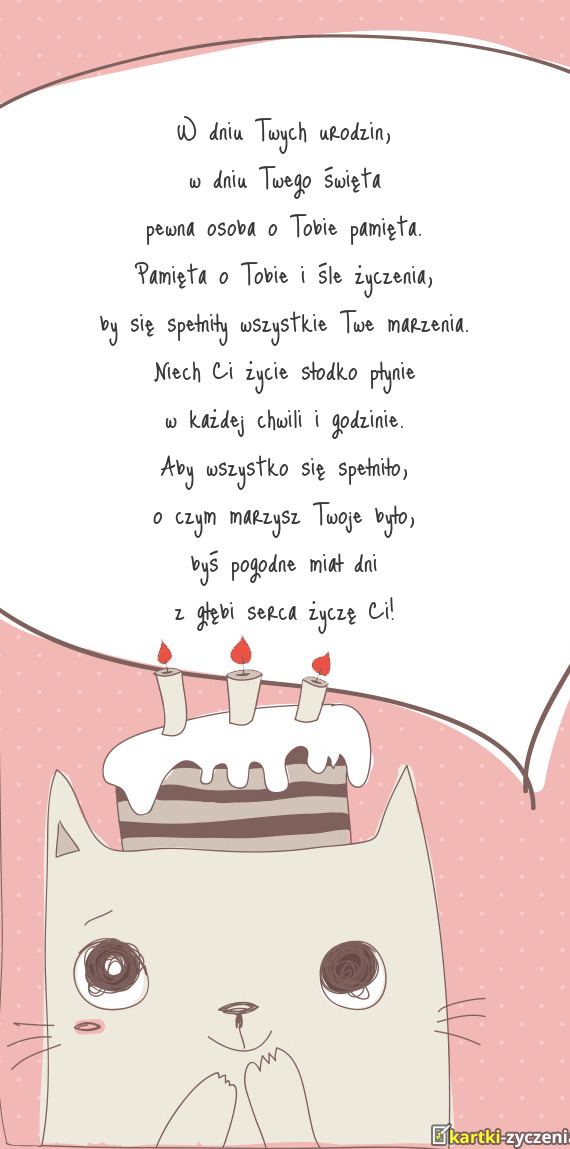 W dniu Twych urodzin,
w dniu Twego święta
pewna osoba o Tobie pamięta.
Pamięta o Tobie i śle życzenia,
by się spełniły wszystkie Twe marzenia.
Niech Ci życie słodko płynie
w każdej chwili i godzinie.
Aby wszystko się spełniło,
o czym marzysz Twoje było,
byś pogodne miał dni
z głębi serca życzę Ci!
kartki-zyczenia